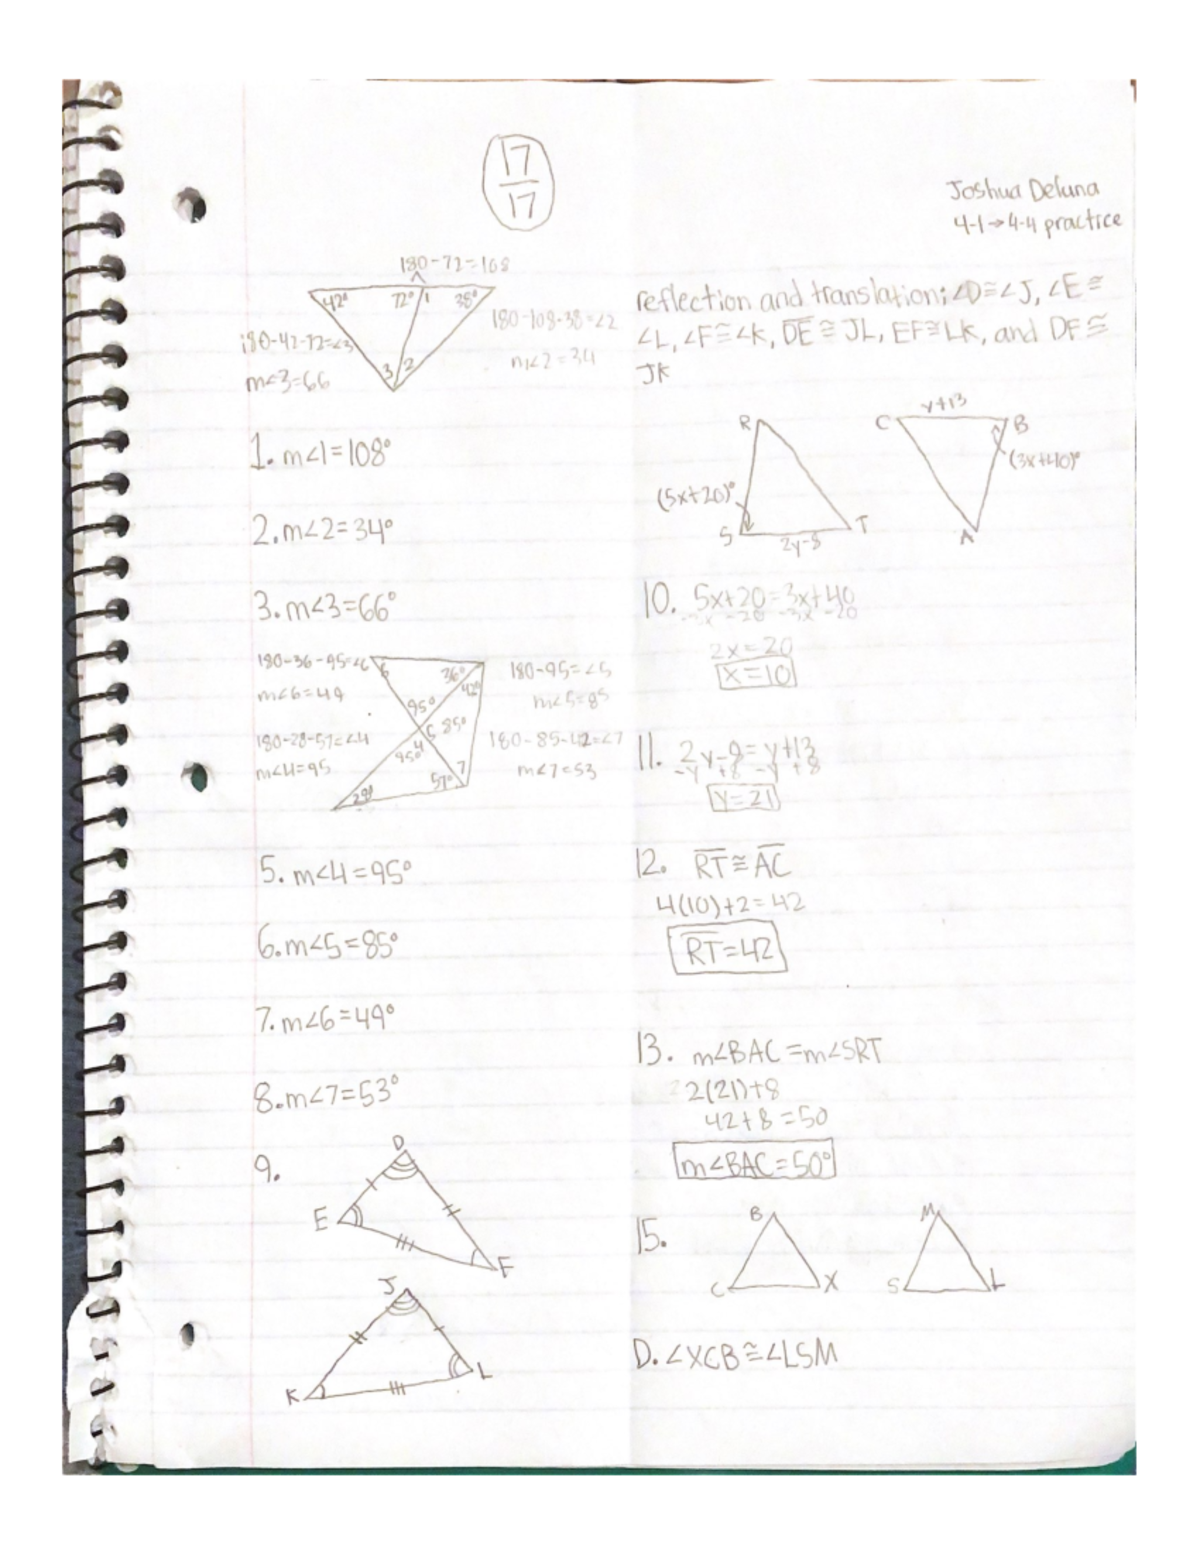 17
17
Joshua Deluna
4-1→4-4 practice
180-72=108
42°
72°
1
38°
180-108-38=∠2
m∠2=34
180-42-72=∠3
m∠3=66
3
2
1. m∠1=108°
2. m∠2=34°
3. m∠3=66°
180-36-95=∠6
m∠6=49
6
36°
42°
180-95=∠5
m∠5=85
95°
5
85°
180-28-57=∠4
m∠4=95
4
95°
180-85-42=∠7
m∠7=53
57°
7
28°
5. m∠4=95°
6. m∠5=85°
7. m∠6=49°
8. m∠7=53°
9.
D
E
F
J
K
L
reflection and translation; ∠D≅∠J, ∠E≅
∠L, ∠F≅∠K, DE≅JL, EF≅LK, and DF≅
JK
R
(5x+20)°
S
2y-8
T
y+13
C
B
(3x+40)°
A
10. 5x+20=3x+40
-3x -20 -3x -20
2x=20
x=10
11. 2y-8=y+13
-y +8 -y +8
y=21
12. RT≅AC
4(10)+2=42
RT=42
13. m∠BAC=m∠SRT
2(21)+8
42+8=50
m∠BAC=50°
15.
B
C
X
M
S
L
D. ∠XCB≅∠LSM